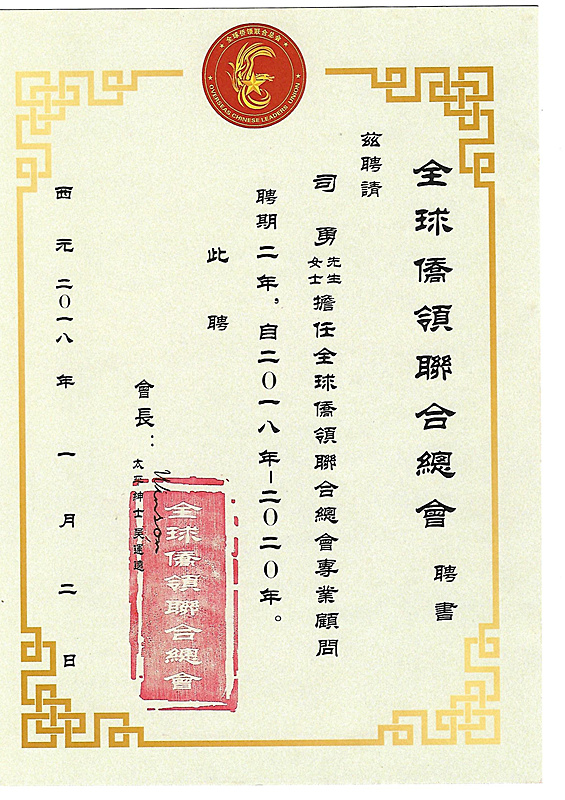 全球侨领联合总会
OVERSEAS CHINESE LEADERS UNION
全球僑領聯合總會 聘書
茲聘請
司勇先生女士擔任全球僑領聯合總會專業顧問
聘期二年，自二〇一八年－二〇二〇年。
此聘
會長：太平紳士吳運遠
Winson
全球僑領聯合總會
西元二〇一八年一月二日